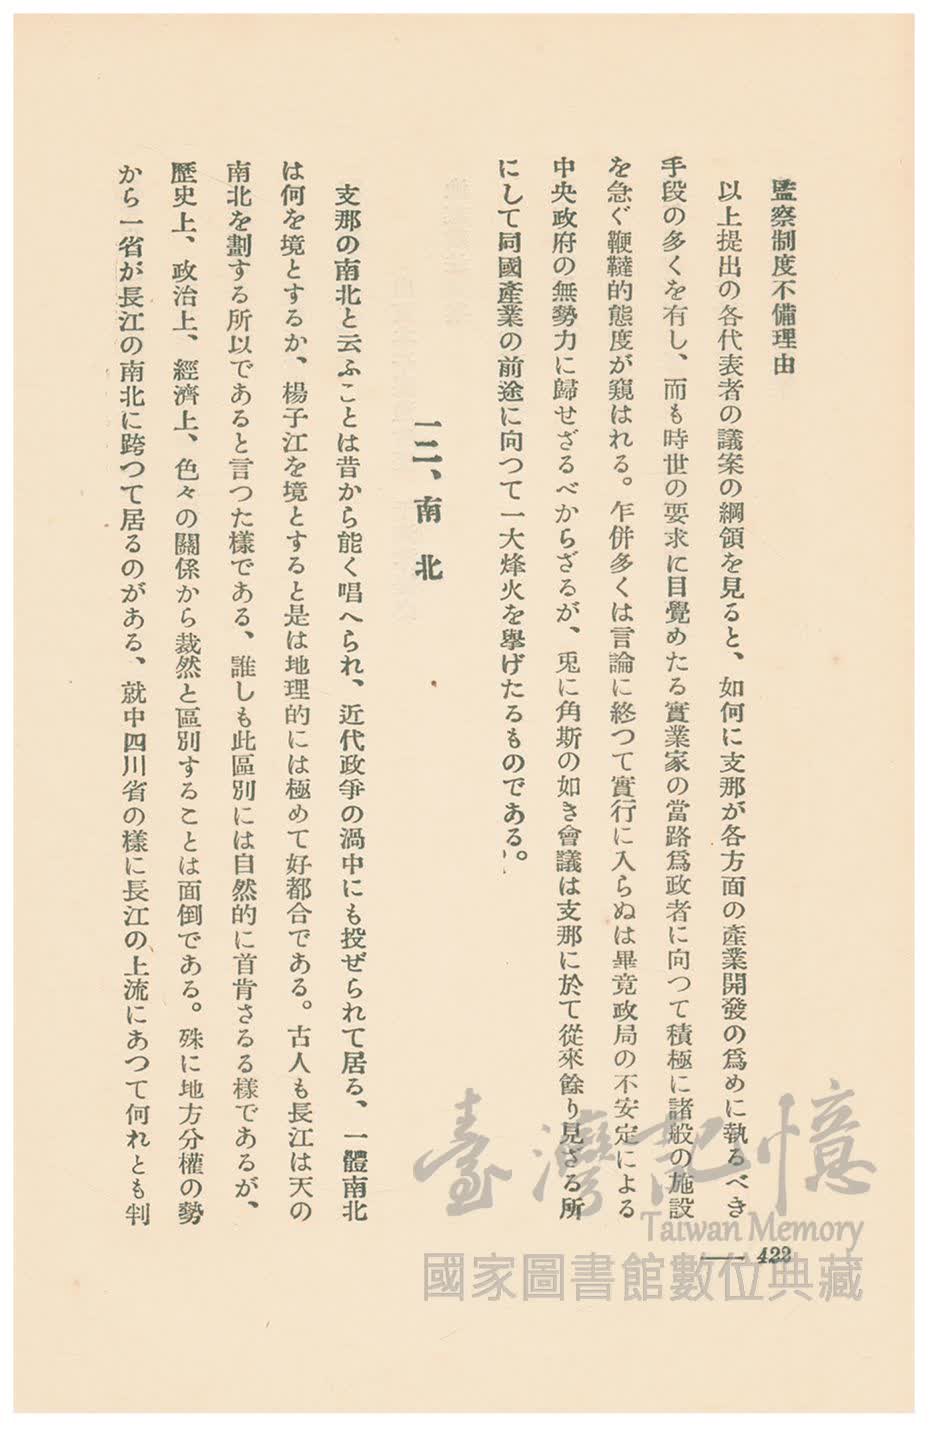 監察制度不備理由
以上提出の各代表者の議案の綱領を見ると、如何に支那が各方面の產業開發の爲めに執るべき
手段の多くを有し、而も時世の要求に目覺めたる實業家の當路爲政者に向つて積極に諸般の施設
を急ぐ鞭韃的態度が窺はれる。乍併多くは言論に終つて實行に入らぬは畢竟政局の不安定による
中央政府の無勢力に歸せざるべからざるが、兎に角斯の如き會議は支那に於て從來餘り見ざる所
にして同國產業の前途に向つて一大烽火を擧げたるものである。
一二、南北
支那の南北と云ふことは昔から能く唱へられ、近代政爭の渦中にも投ぜられて居る、一體南北
は何を境とするか、楊子江を境とすると是は地理的には極めて好都合である。古人も長江は天の
南北を劃する所以であると言つた樣である、誰しも此區別には自然的に首肯さるる樣であるが、
歷史上、政治上、經濟上、色々の關係から裁然と區別することは面倒である。殊に地方分權の勢
から一省が長江の南北に跨つて居るのがある、就中四川省の樣に長江の上流にあつて何れとも判
422
臺灣記憶
Taiwan Memory
國家圖書館數位典藏